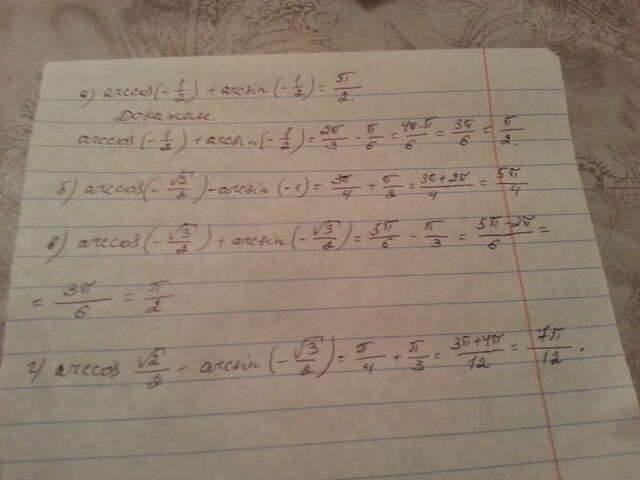 а) arccos(-1/2) + arcsin(-1/2) = π/2.
Докажем
arccos(-1/2) + arcsin(-1/2) = 2π/3 - π/6 = 4π-π/6 = 3π/6 = π/2.
б) arccos(-√2/2) - arcsin(-1) = 3π/4 + π/2 = 3π+2π/4 = 5π/4
в) arccos(-√3/2) + arcsin(-√3/2) = 5π/6 - π/3 = 5π-2π/6 =
= 3π/6 = π/2
г) arccos √2/2 - arcsin(-√3/2) = π/4 + π/3 = 3π+4π/12 = 7π/12.